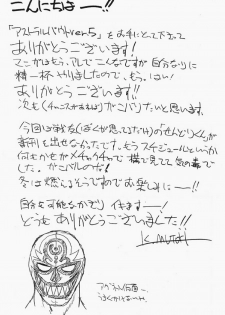 こんにちはー!!
「アストラルバウトver.5」をお手にとって下さって
ありがとうございます!
マンガはもう、アレでこんなですが自分なりに
精一杯やりましたので、もう、はい!
ありがとうございます!
次も(チャンスがあれば)がんばりたいと思います。
今回は戦友(ぼくが思ってるだけ)の
新刊を出せなかったです。もうスケジュールというか
何もかもがメチャクチャで横で見てて気の毒で
した。がんばルのな!
冬は燃えるそうですのでお楽しみにーー!!
自分も可能なかぎりイキますー!
どうもありがとうございました!!